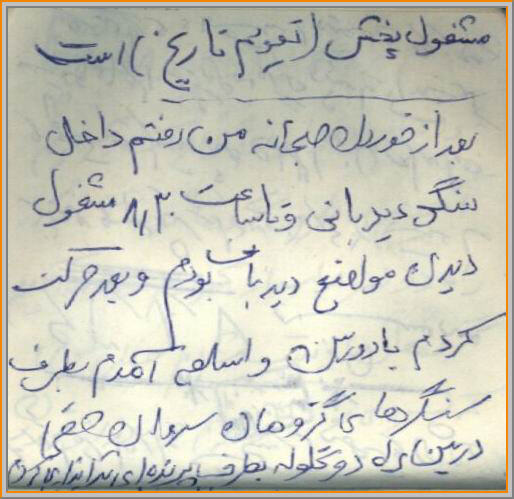 مشغول پخش (تقویم تاریخ) است
بعد از خوردن صبحانه من رفتم داخل
سنگر دیدبانی و تا ساعت ۸/۳۰ مشغول
دیدن مواضع دیدبانی بودم و بعد حرکت
کردم با دوربین و اسلحه آمدم بطرف
سنگرهای گروهان سروان شفیی
در بین راه دو گلوله بطرف پرنده‌ای